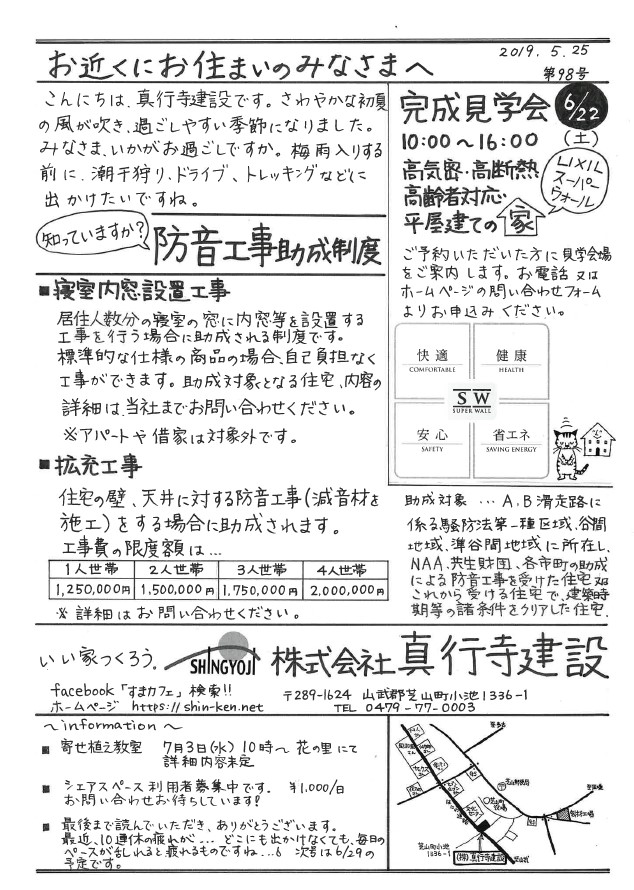 お近くにお住まいのみなさまへ
2019. 5. 25
第98号
こんにちは、真行寺建設です。さわやかな初夏
の風が吹き、過ごしやすい季節になりました。
みなさま、いかがお過ごしですか。梅雨入りする
前に、潮干狩り、ドライブ、トレッキングなどに
出かけたいですね。
完成見学会
6/22
(土)
10:00～16:00
高気密・高断熱
高齢者対応・
平屋建ての家
LIXIL
スーパー
ウォール
ご予約いただいた方に見学会場
をご案内します。お電話又は
ホームページの問い合わせフォーム
よりお申込みください。
知っていますか?
防音工事助成制度
■寝室内窓設置工事
居住人数分の寝室の窓に内窓等を設置する
工事を行う場合に助成される制度です。
標準的な仕様の商品の場合、自己負担なく
工事ができます。助成対象となる住宅、内容の
詳細は、当社までお問い合わせください。
※アパートや借家は対象外です。
快適
COMFORTABLE
健康
HEALTH
SW
SUPER WALL
安心
SAFETY
省エネ
SAVING ENERGY
■拡充工事
住宅の壁、天井に対する防音工事(減音材を
施工)をする場合に助成されます。
工事費の限度額は…
1人世帯 2人世帯 3人世帯 4人世帯
1,250,000円 1,500,000円 1,750,000円 2,000,000円
※詳細はお問い合わせください。
助成対象 … A、B滑走路に
係る騒防法第一種区域、谷間
地域、準谷間地域に所在し、
NAA、共生財団、各市町の助成
による防音工事を受けた住宅又は
これから受ける住宅で、建築時
期等の諸条件をクリアした住宅.
いい家つくろう。
SHINGYOJI
株式会社真行寺建設
facebook「すまカフェ」検索!!
ホームページ https://shin-ken.net
〒289-1624 山武郡芝山町小池1336-1
TEL 0479-77-0003
～information～
■ 寄せ植え教室 7月3日(水) 10時～ 花の里にて
詳細内容未定
■ シェアスペース利用者募集中です。 ¥1,000/日
お問い合わせお待ちしています!
■ 最後まで読んでいただき、ありがとうございます。
最近、10連休の疲れが… どこにも出かけなくても、毎日の
ペースが乱れると疲れるものですね…6 次号は6/29の
予定です。
芝山町小池
1336-1
(株)真行寺建設